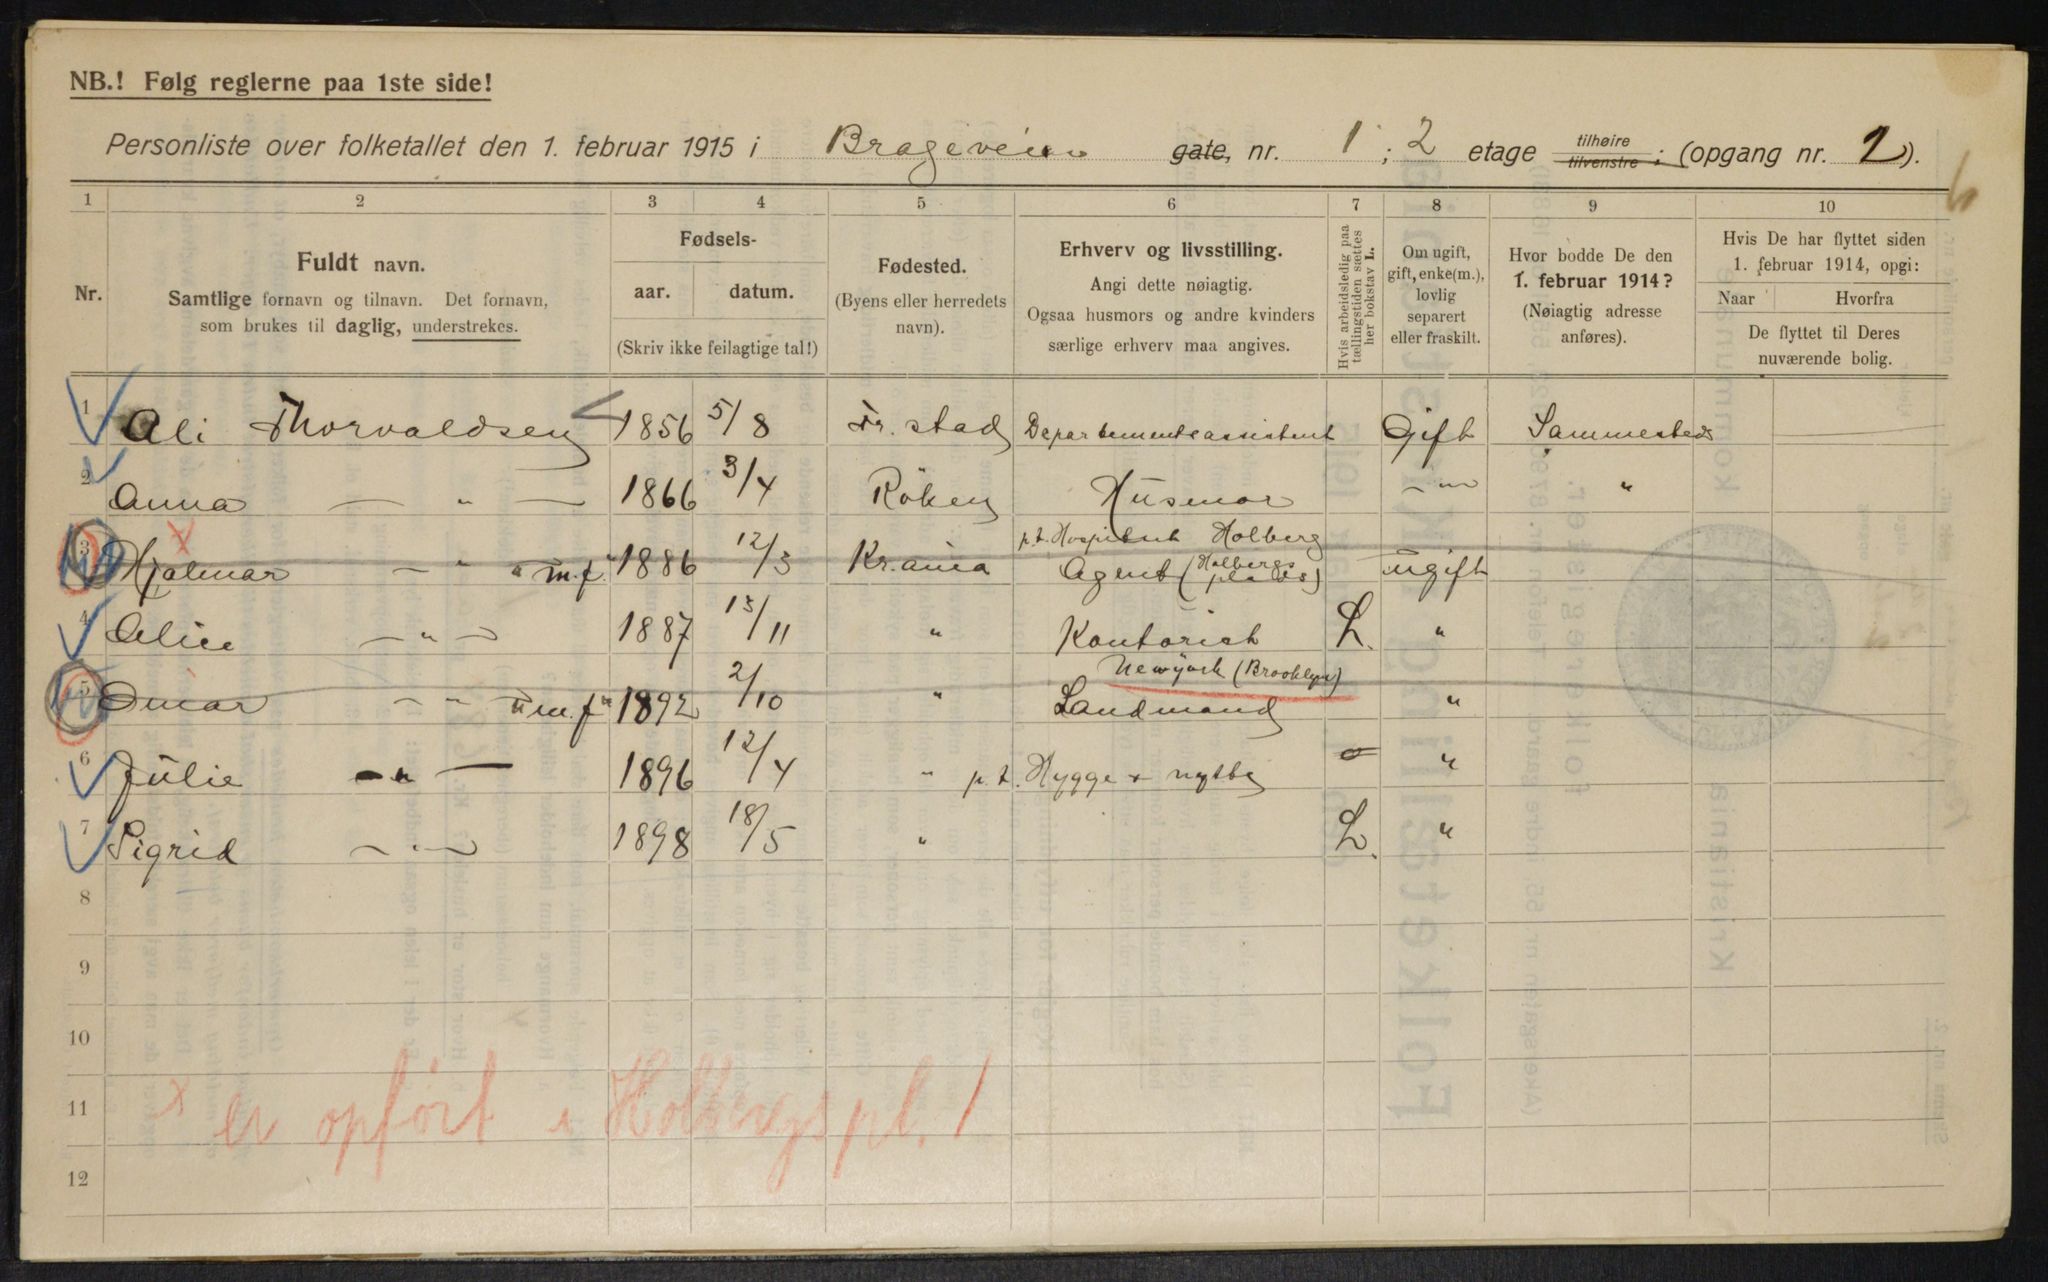 NB.! Følg reglerne paa 1ste side!
Personliste over folketallet den 1. februar 1915 i Brageveien gate, nr. 1 ; 2 etage tilhøire tilvenstre ; (opgang nr. 2).
1 2 3 4 5 6 7 8 9 10
Nr.
Fuldt navn.
Samtlige fornavn og tilnavn. Det fornavn,
som brukes til daglig, understrekes.
Fødsels-
aar. datum.
(Skriv ikke feilagtige tal!)
Fødested.
(Byens eller herredets
navn).
Erhverv og livsstilling.
Angi dette nøiagtig.
Ogsaa husmors og andre kvinders
særlige erhverv maa angives.
Hvis arbeidsledig paa
tællingstiden sættes
her bokstav L.
Om ugift,
gift, enke(m.),
lovlig
separert
eller fraskilt.
Hvor bodde De den
1. februar 1914?
(Nøiagtig adresse
anføres).
Hvis De har flyttet siden
1. februar 1914, opgi:
Naar Hvorfra
De flyttet til Deres
nuværende bolig.
1 Ali Thorvaldsen 1856 5/8 Fr. stad Departementsassistent Gift Sammesteds
2 Anna — " — 1866 3/4 Röken Husmor — " — "
p.t. Hospitset Holberg
3 Hjalmar — " " m.f. " 1886 12/3 Kr.ania Agent (Holbergs plads) ugift
4 Alice — " — 1887 13/11 " Kontorist L. "
Newyork (Brooklyn)
5 Omar — " " m.f. " 1892 2/10 " Landmand "
6 Julie — " — 1896 12/4 " p.t. Hygge & nytte "
7 Sigrid — " — 1898 18/5 " L. "
8
9
10
11 x er opført i Holbergs pl. 1
12